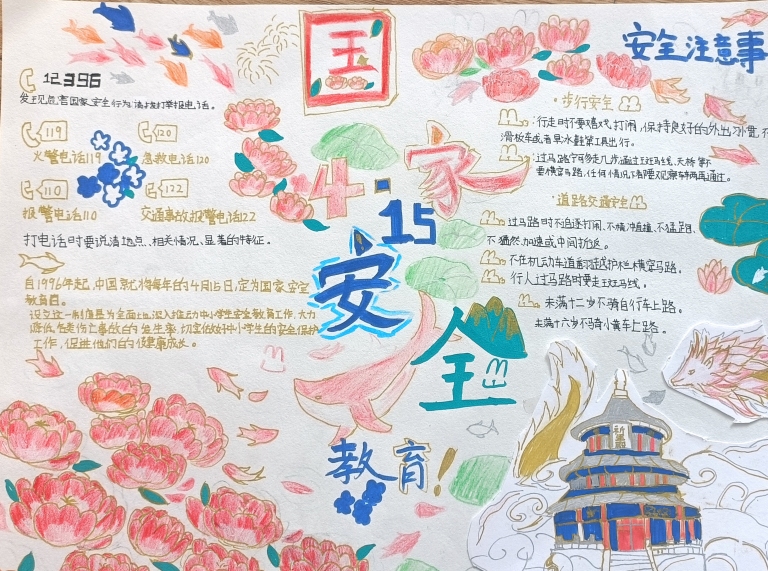 国
家
4·15
安
全
教育!
12396
发现危害国家安全行为请拨打举报电话。
119
火警电话119
120
急救电话120
110
报警电话110
122
交通事故报警电话122
打电话时要说清地点、相关情况、显著的特征。
自1996年起,中国就将每年的4月15日,定为国家安全
教育日。
设立这一制度是为全面深入推动中小学生安全教育工作,大力
降低各类伤亡事故的发生率,切实做好中小学生的安全保护
工作,促进他们的健康成长。
安全注意事
·步行安全
:行走时不要嬉戏、打闹,保持良好的外出习惯,不
滑板车或者旱冰鞋等工具出行。
:过马路宁可多走几步通过斑马线、天桥等不
要横穿马路,任何情况下都要观察车辆再通过。
·道路交通安全
过马路时不追逐打闹、不横冲直撞、不猛跑、
不猛然加速或中间折返。
不在机动车道翻越护栏横穿马路。
行人过马路时要走斑马线。
未满十二岁不骑自行车上路。
未满十六岁不骑小黄车上路。
祈年殿